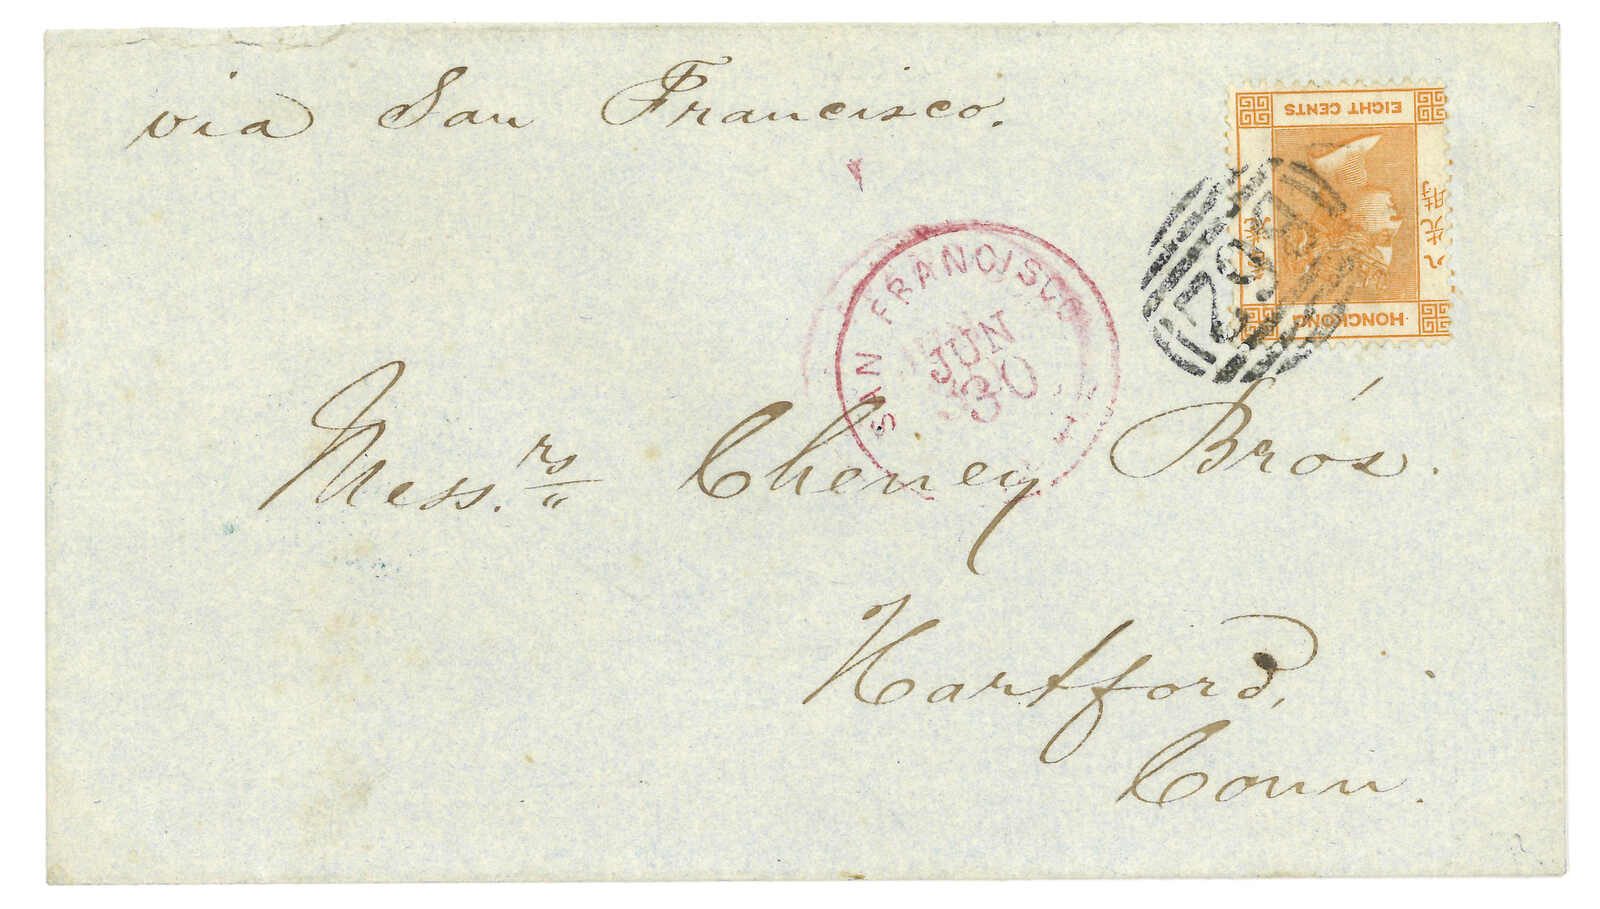 via San Francisco.
EIGHT CENTS
八先時
HONGKONG
SAN FRANCISCO
JUN
30
Messrs. Cheney Bros.
Hartford,
Conn.